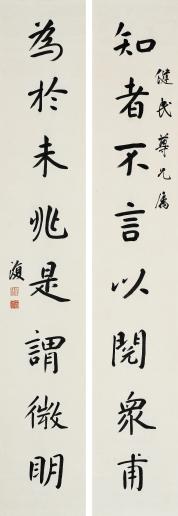 健民尊兄属
知者不言以閱衆甫
為於未兆是謂微明
復